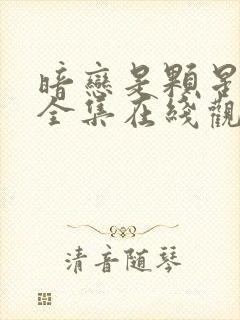 暗戀是顆星
全集在綫觀
清音随琴